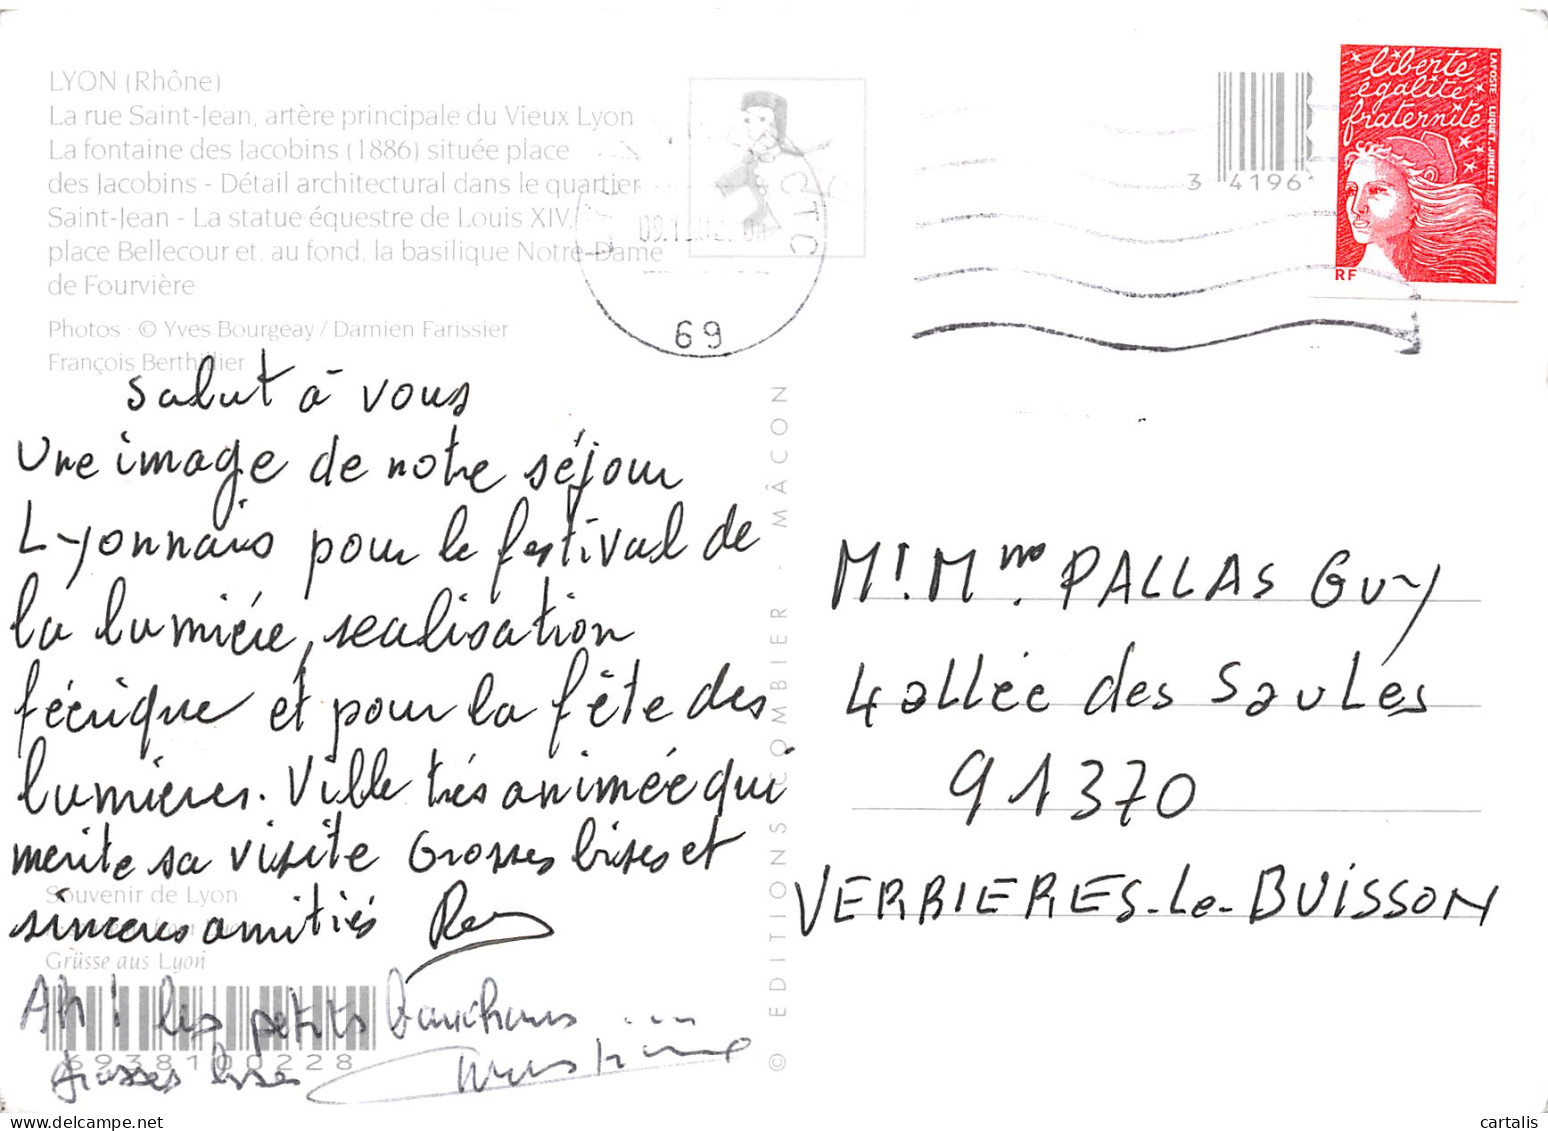 LYON (Rhône)
La rue Saint-Jean, artère principale du Vieux Lyon
La fontaine des Jacobins (1886) située place
des Jacobins - Détail architectural dans le quartier
Saint-Jean - La statue équestre de Louis XIV,
place Bellecour et, au fond, la basilique Notre-Dame
de Fourvière
Photos : © Yves Bourgeay / Damien Farissier
François Berthillier
salut à vous
Une image de notre séjour
Lyonnais pour le festival de
la lumière, realisation
féerique et pour la fête des
lumières. Ville très animée qui
merite sa visite Grosses bises et
sinceres amitiés
Souvenir de Lyon
Grüsse aus Lyon
Ah ! les petits bouchons ...
grosses bises
6938100228
© EDITIONS COMBIER - MÂCON
CTC
69
3 4196
liberté
égalité
fraternité
LA POSTE LUQUET. JUMELET
RF
Mr. Mme PALLAS GUY
4 allée des Saules
91370
VERRIERES-Le-BUISSON
cartalis.com